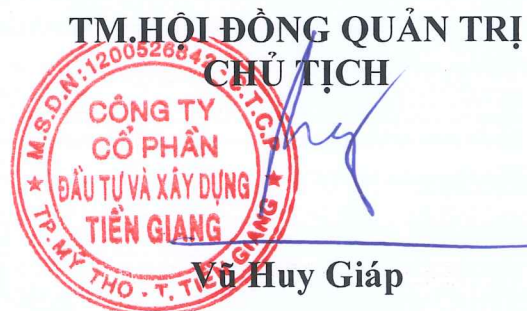 TM.HỘI ĐỒNG QUẢN TRỊ
CHỦ TỊCH
M.S.D.N:1200526842-C.T.C.P
CÔNG TY
CỔ PHẦN
ĐẦU TƯ VÀ XÂY DỰNG
TIỀN GIANG
TP. MỸ THO - T. TIỀN GIANG
Vũ Huy Giáp